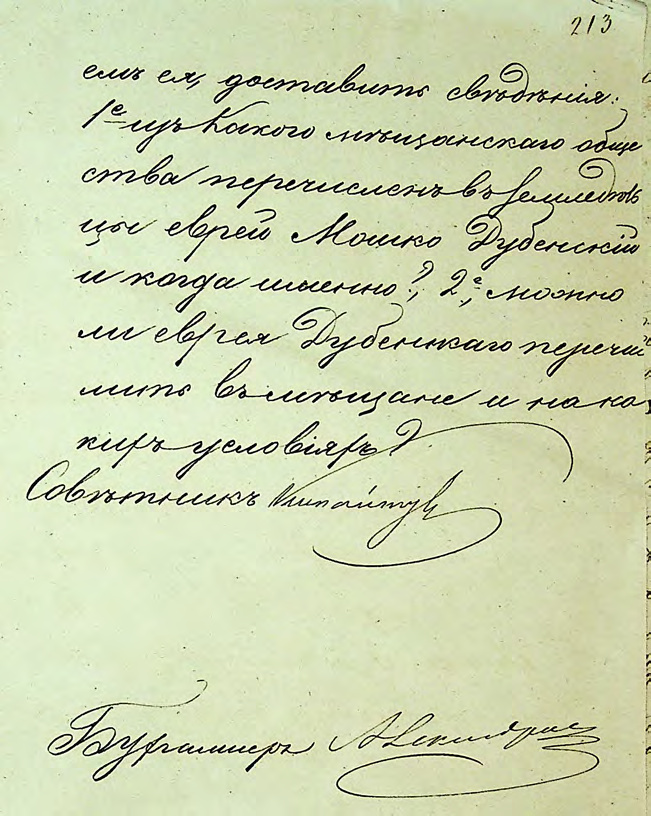 213
емъ ея, доставить свѣдѣнія:
1е изъ какого мѣщанскаго обще
ства перечисленъ въ Земледѣль
цы еврей Мошко Дубенскій
и когда именно?, 2е, можно
ли еврея Дубенскаго перечис
лить въ мѣщане и на ка
кихъ условіяхъ?
Совѣтникъ
Бухгалтеръ